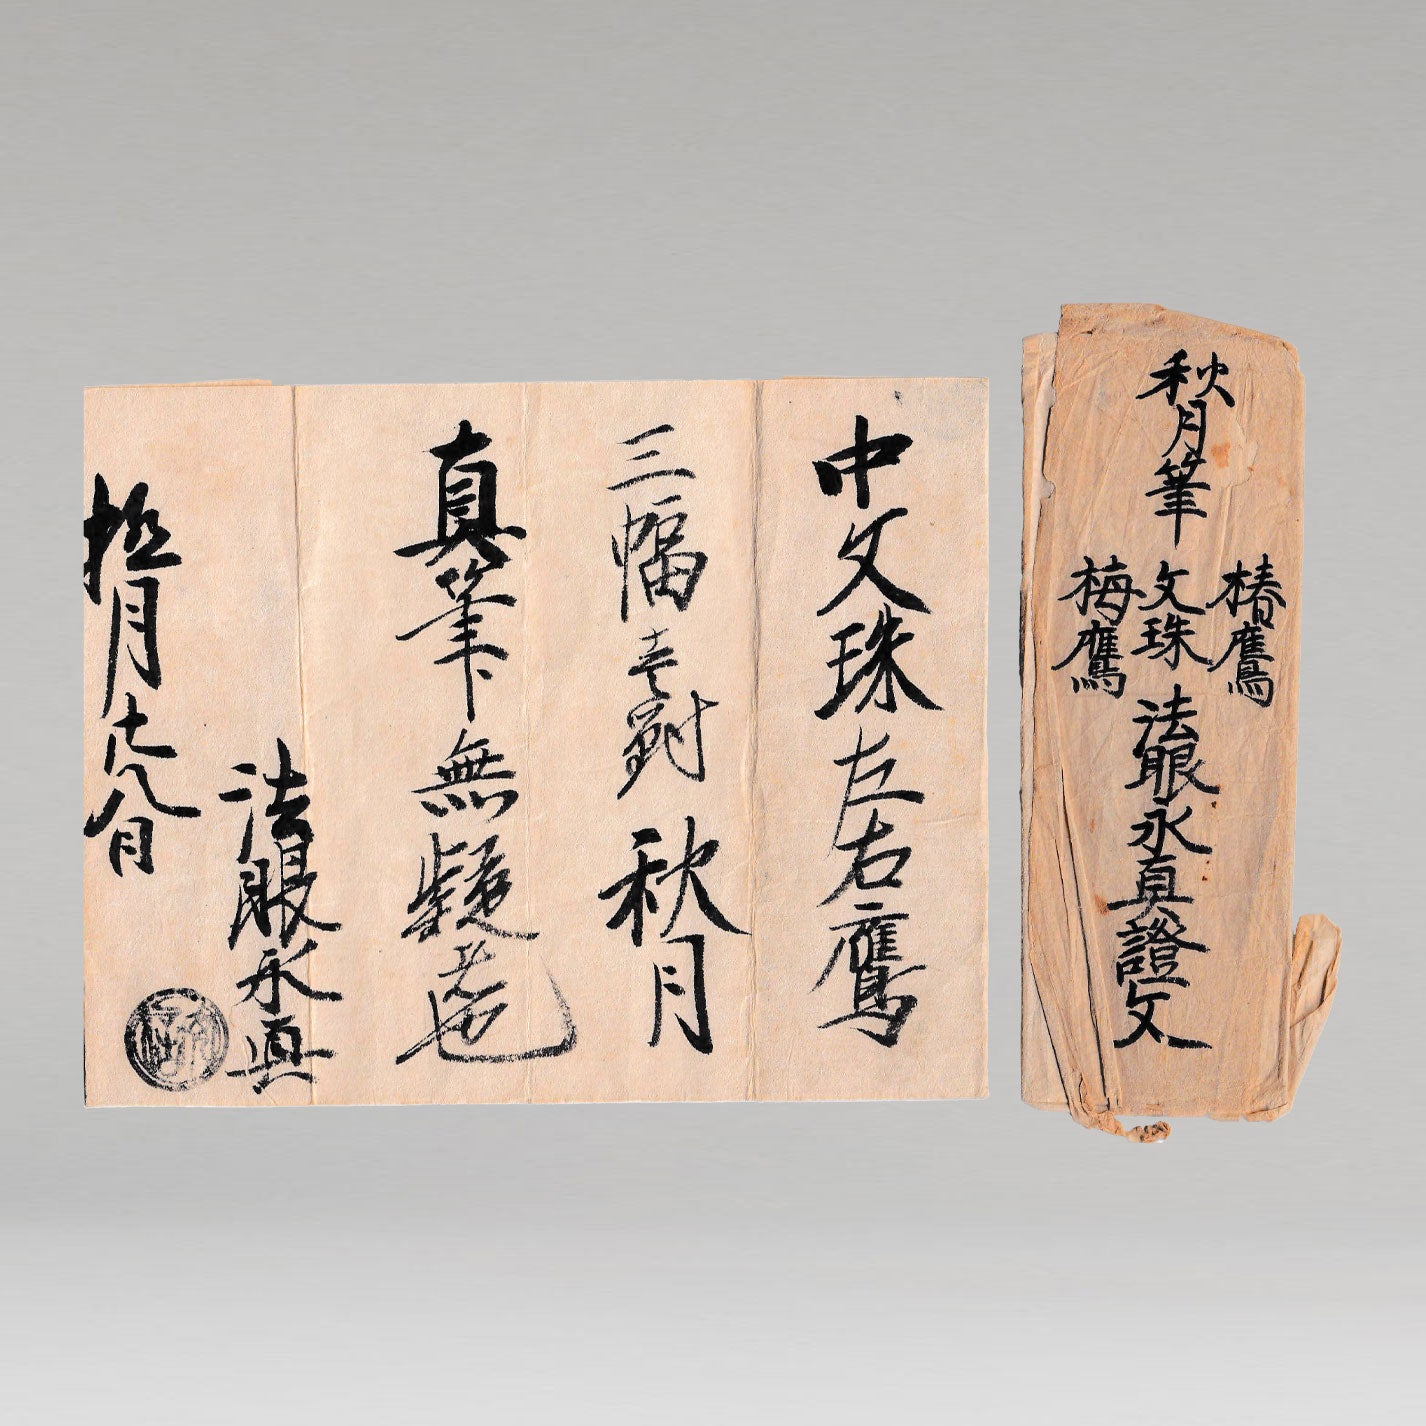 秋月筆
椿鷹
文珠
梅鷹
法眼永真證文
中文珠左右鷹
三幅壱對 秋月
真筆無疑者也
法眼永真
拾月十八日